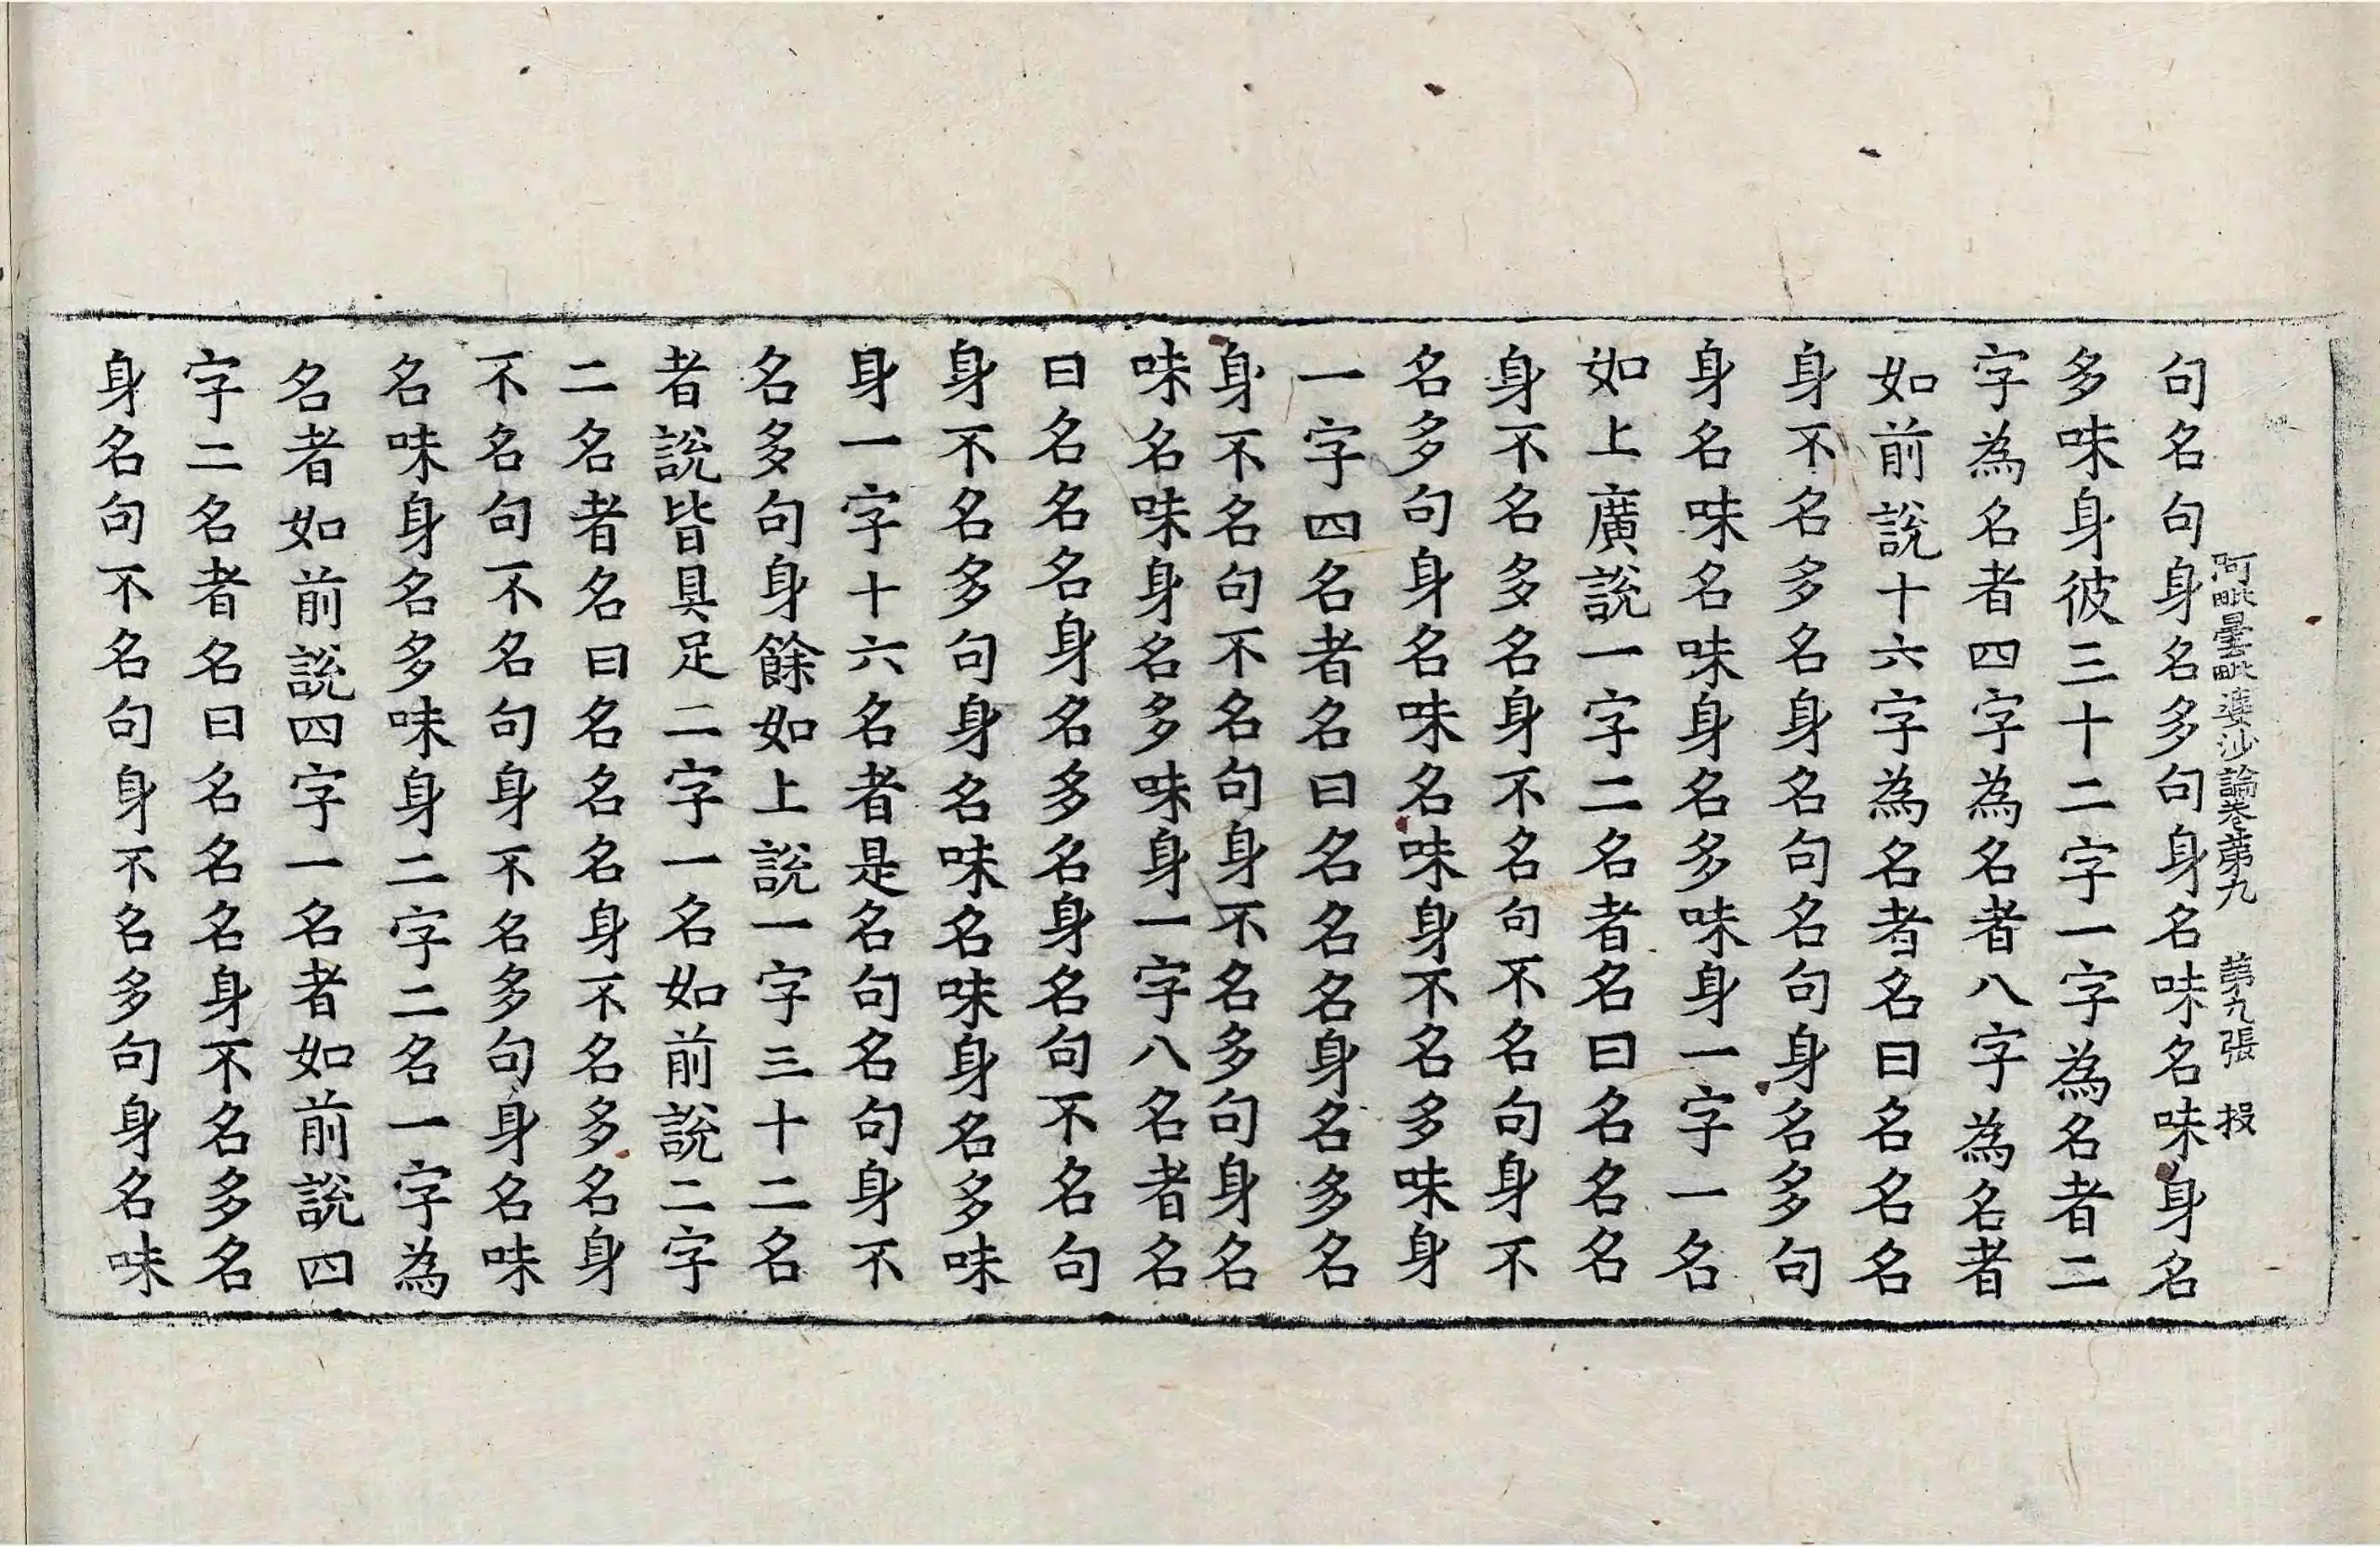 阿毗曇毗婆沙論卷第九 第九張 投
句名句身名多句身名味名味身名
多味身彼三十二字一字為名者二
字為名者四字為名者八字為名者
如前說十六字為名者名曰名名名
身不名多名身名句名句身名多句
身名味名味身名多味身一字一名
如上廣說一字二名者名曰名名名
身不名多名身不名句不名句身不
名多句身名味名味身不名多味身
一字四名者名曰名名名身名多名
身不名句不名句身不名多句身名
味名味身名多味身一字八名者名
曰名名名身名多名身名句不名句
身不名多句身名味名味身名多味
身一字十六名者是名句名句身不
名多句身餘如上說一字三十二名
者說皆具足二字一名如前說二字
二名者名曰名名名身不名多名身
不名句不名句身不名多句身名味
名味身名多味身二字二名一字為
名者如前說四字一名者如前說四
字二名者名曰名名名身不名多名
身名句不名句身不名多句身名味